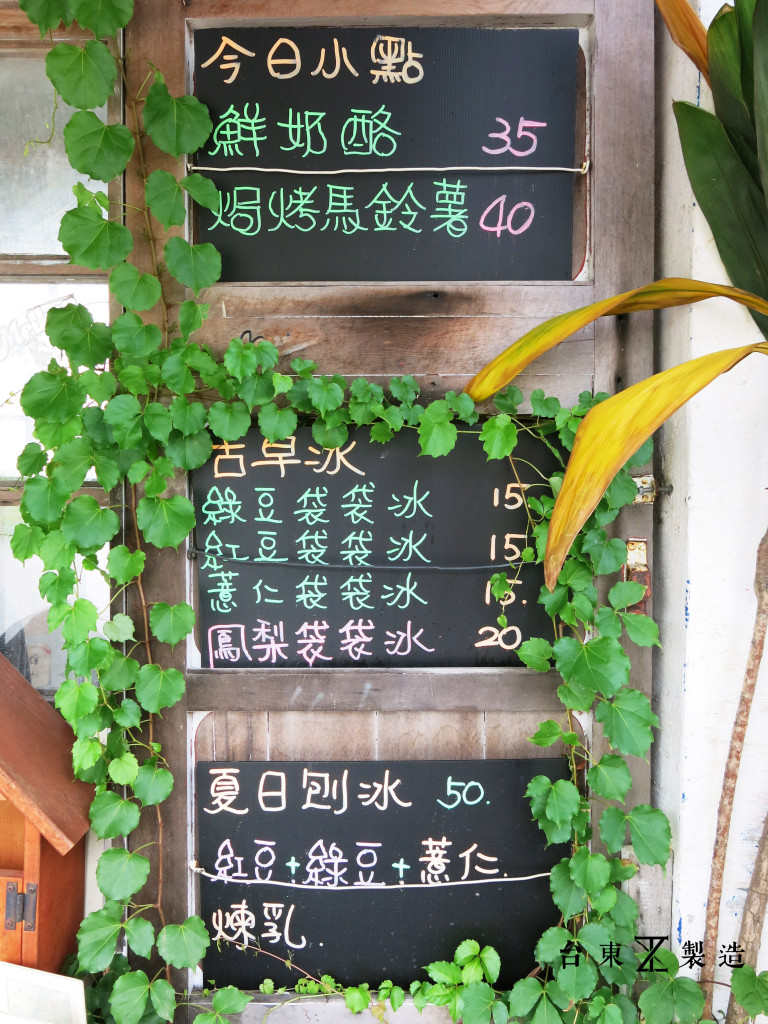 今日小點
鮮奶酪 35
焗烤馬鈴薯 40
古早冰
綠豆袋袋冰 15
紅豆袋袋冰 15
薏仁袋袋冰 15.
鳳梨袋袋冰 20
夏日刨冰 50.
紅豆+綠豆+薏仁.
煉乳.
台東製造